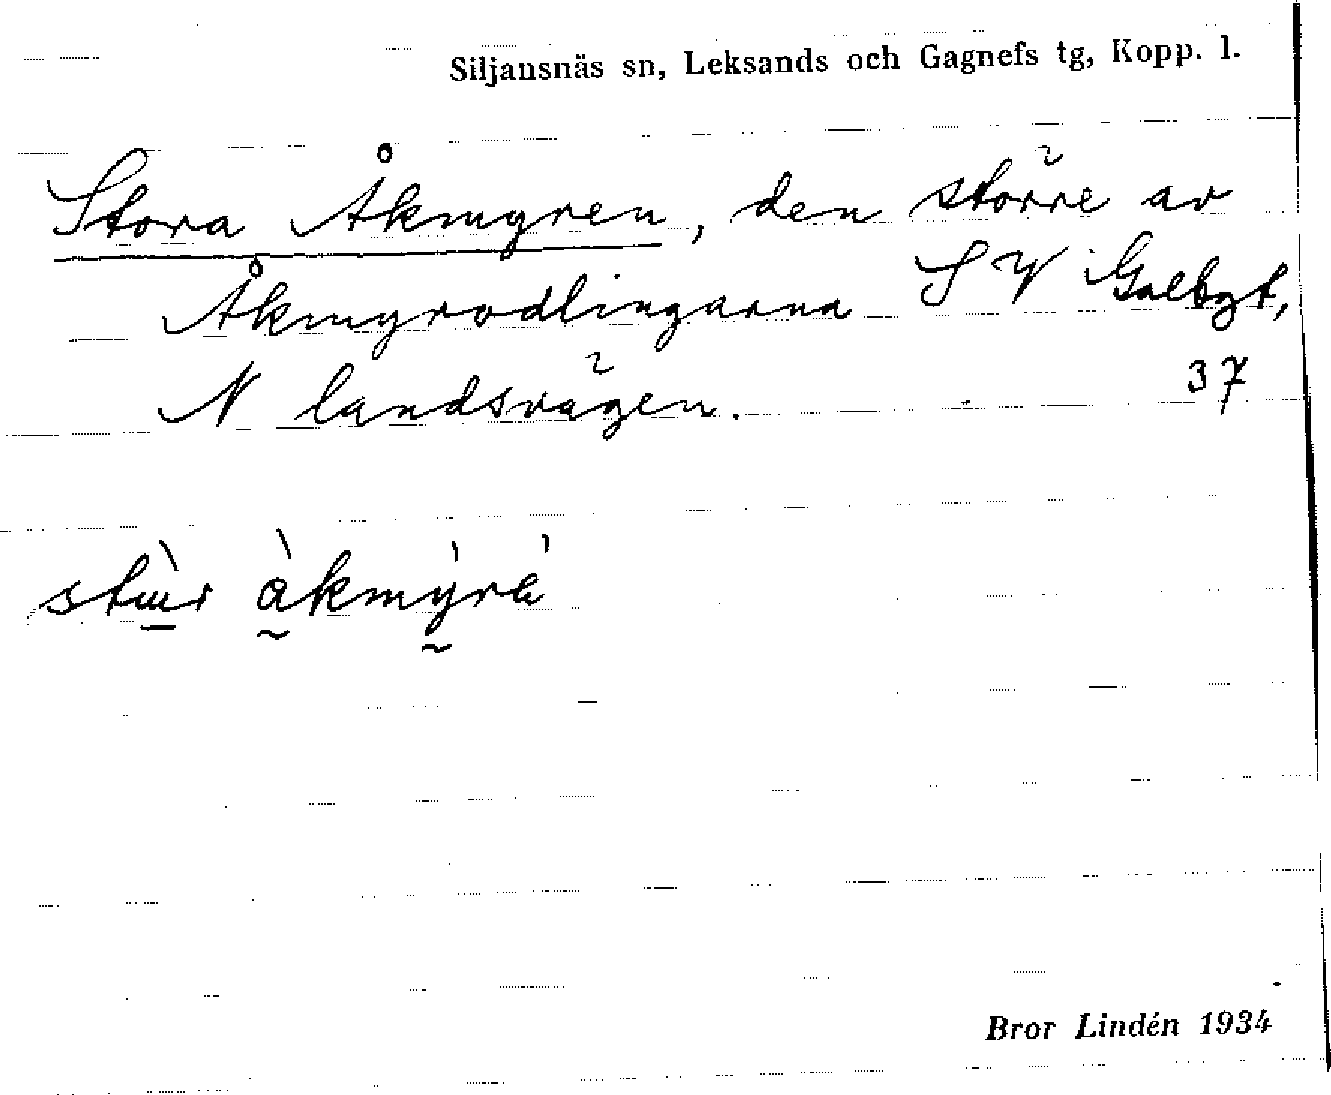 Siljansnäs sn, Leksands och Gagnefs tg, Kopp. l.
Stora Åkmyren, den större av
Åkmyrodlingarna SV
N landsvägen. 37
Bror Lindén 1934